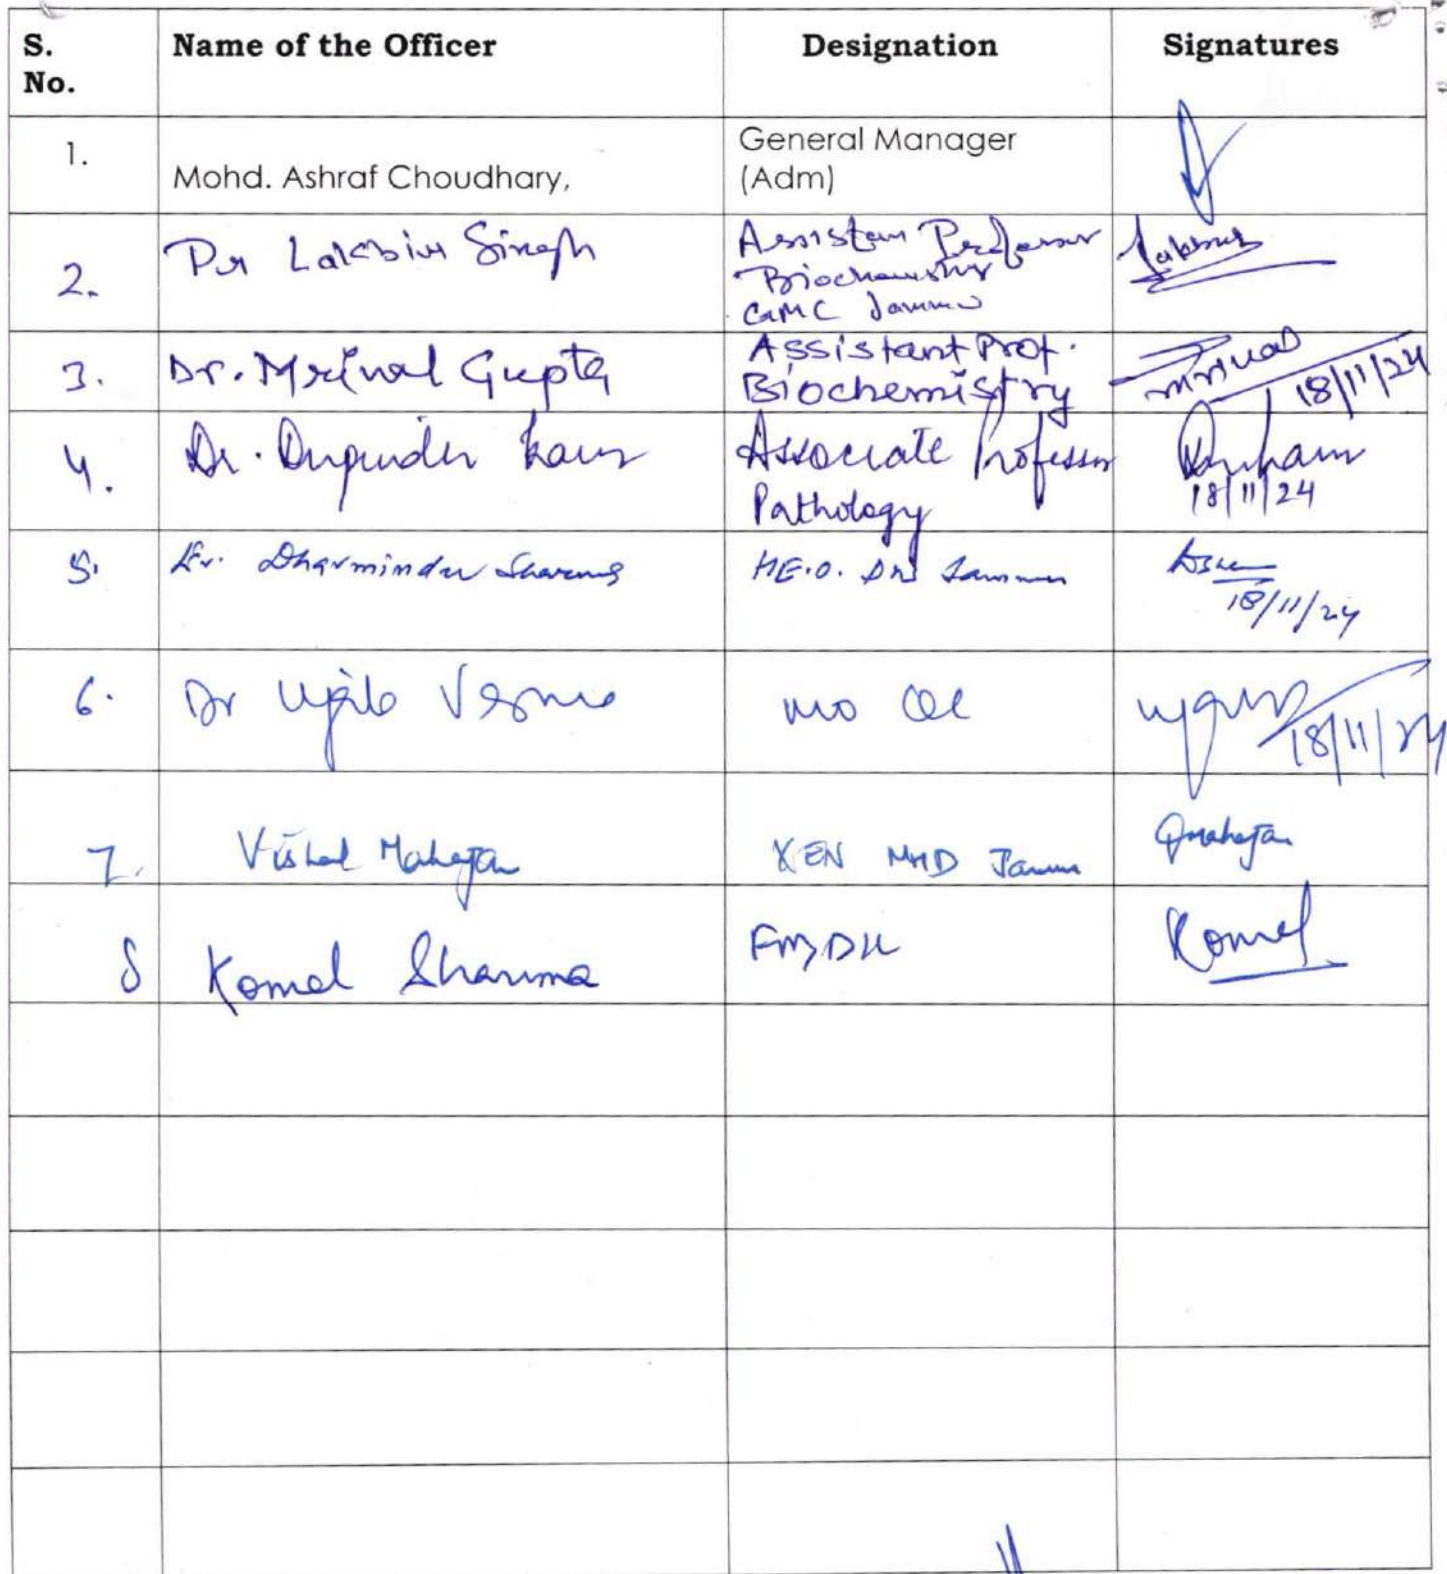 S. No. Name of the Officer Designation Signatures
1. Mohd. Ashraf Choudhary, General Manager (Adm)
2. Dr Lakbir Singh Assistan Professor
Biochemistry
GMC Jammu
3. Dr. Mrinal Gupta Assistant Prof.
Biochemistry Mrinal
18/11/24
4. Dr. Kaur Associate Professor
Pathology
18/11/24
5. Er. Dharminder Sharma Jammu
18/11/24
6. Dr Verma MO
18/11/24
7. Vishal Mahajan XEN MHD Jammu Mahajan
8 Komal Sharma Komal